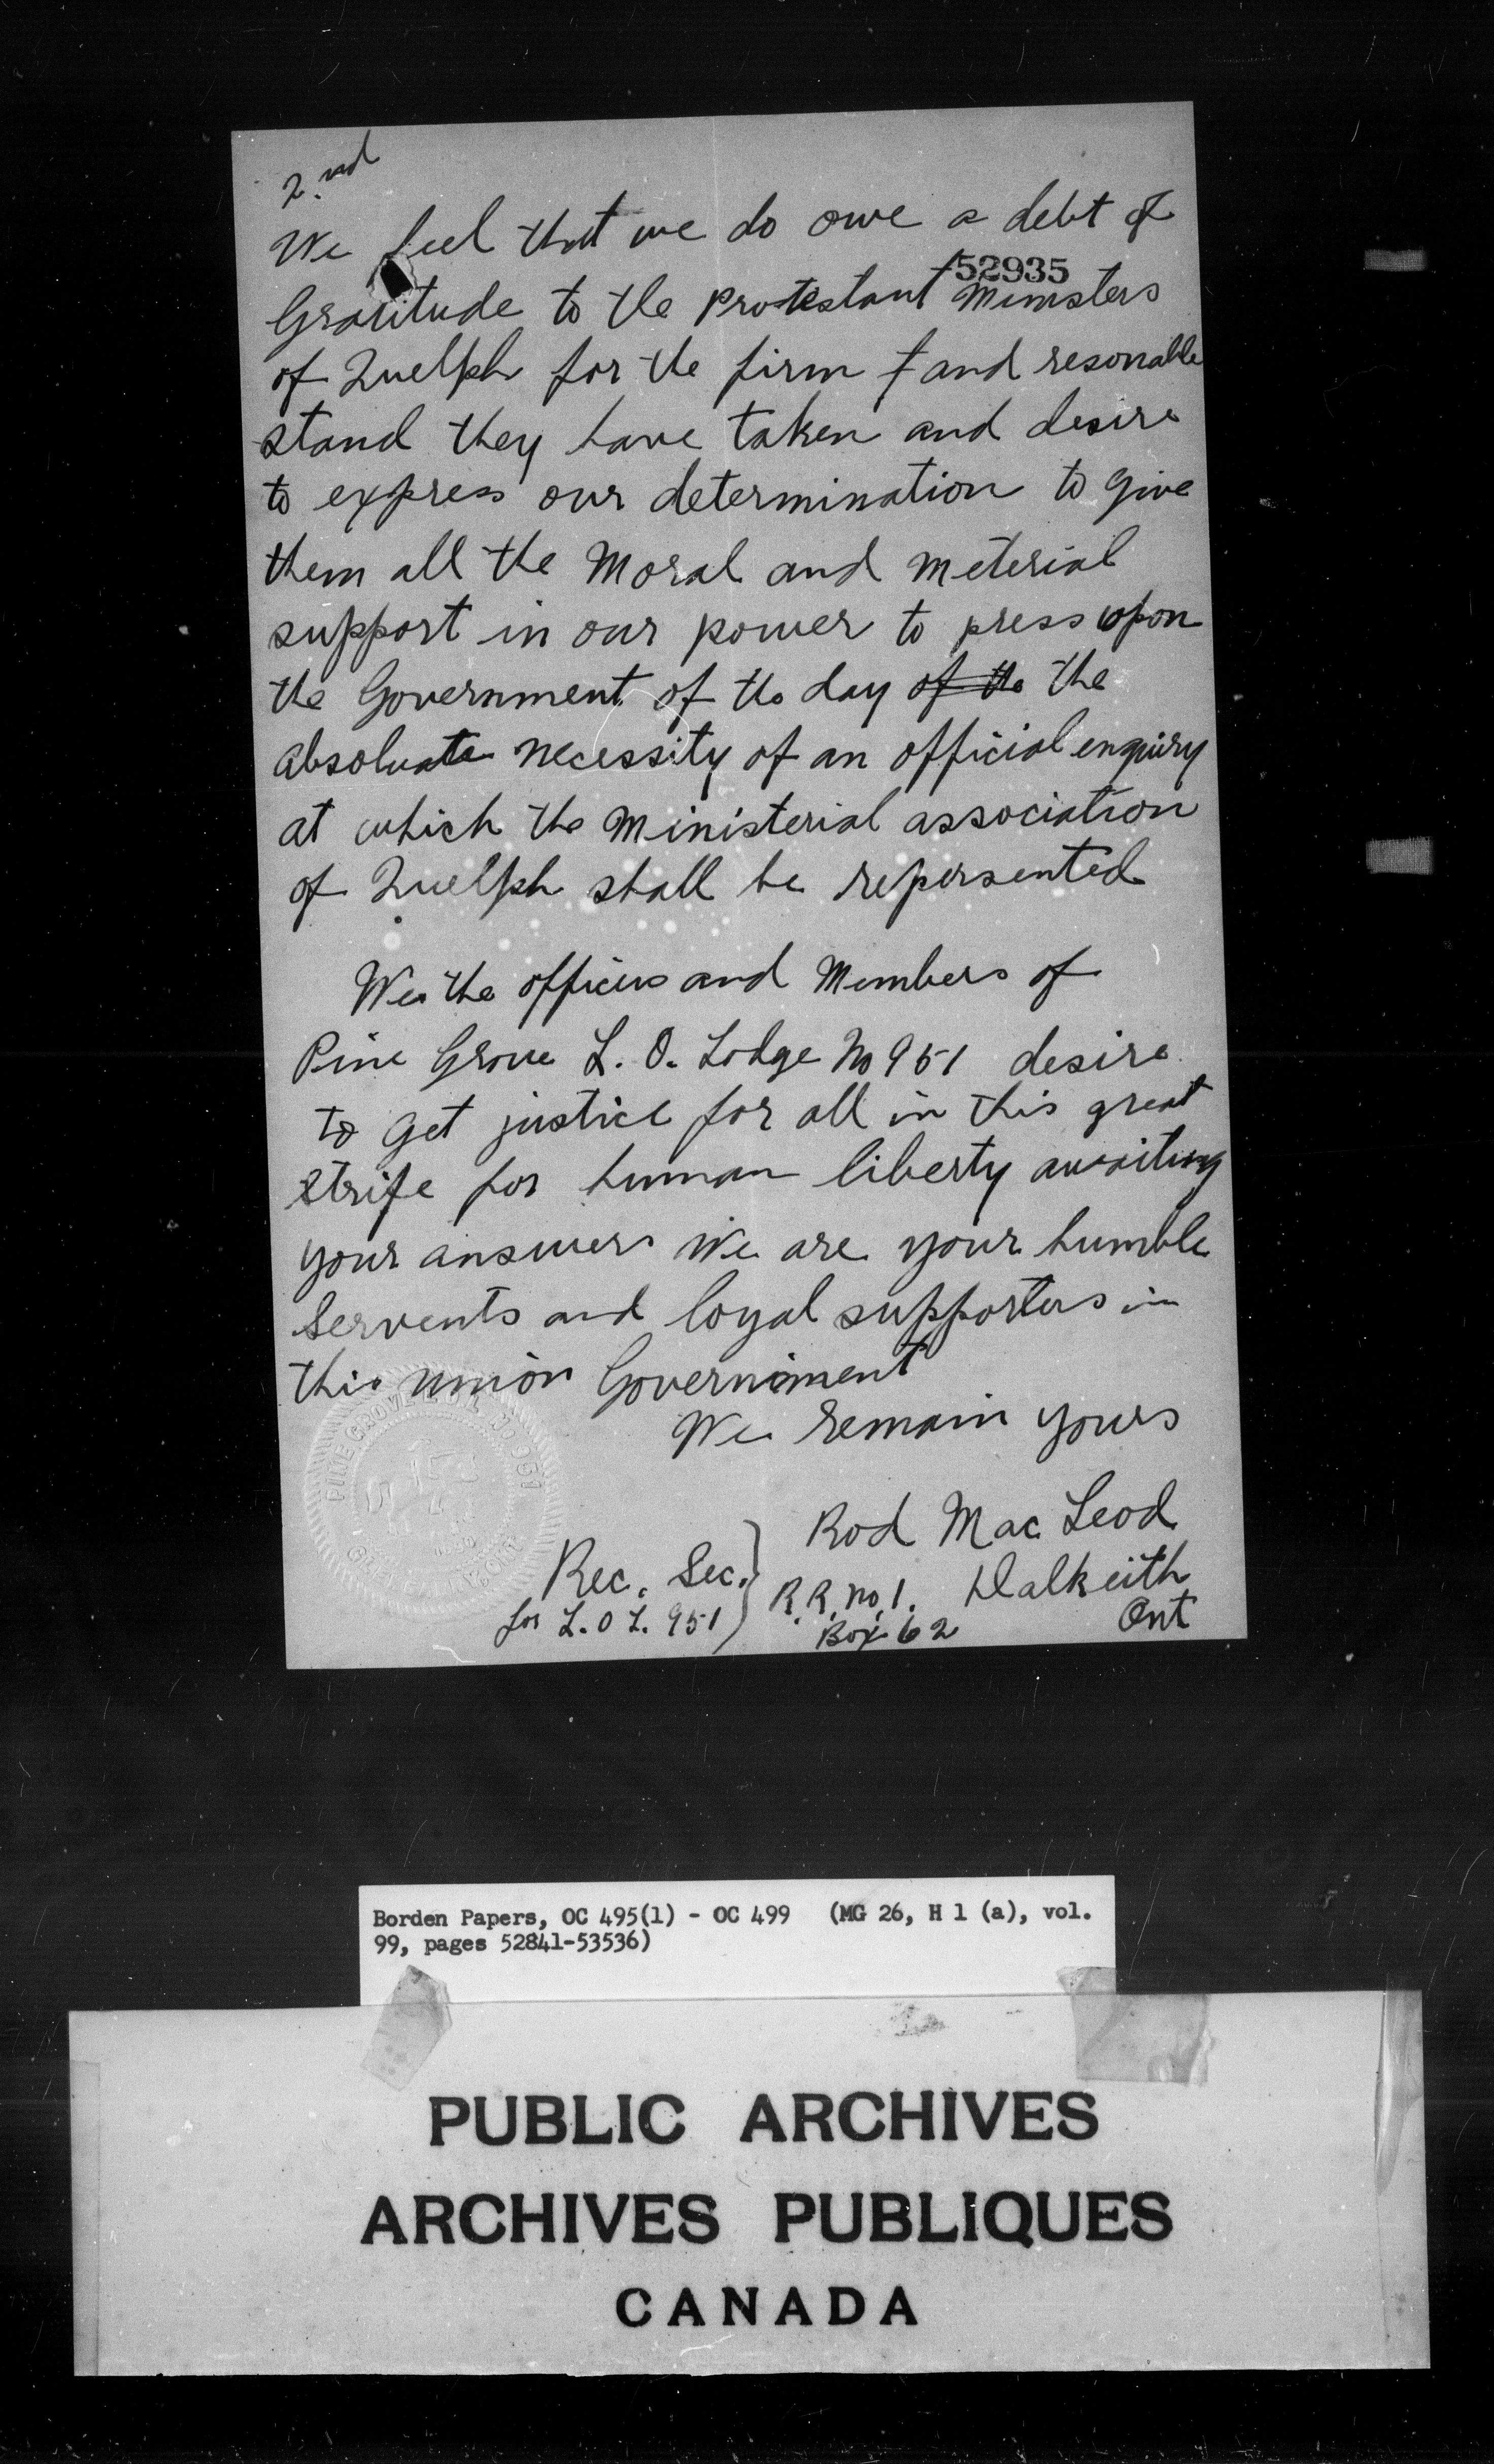 2.nd
We feel that we do owe a debt of
52935
Gratitude to the Protestant Ministers
of Guelph for the firm f and resonable
stand they have taken and desire
to express our determination to give
them all the Moral and Meterial
support in our power to press upon
the Government of the day of the the
absoluate necessity of an official enquiry
at which the Ministerial association
of Guelph shall be repersented
We the officers and Members of
Pine Grove L. O. Lodge No 951 desire
to get justice for all in this great
strife for human liberty awaiting
your answer We are your humble
Servents and loyal supporters in
this union Government
We remain yours
PINE GROVE L.O.L. No 951
Rod Mac Leod
Rec. Sec.
R.R. no. 1. Dalkeith
for L.O L. 951
Box 62 Ont
Borden Papers, OC 495(1) - OC 499 (MG 26, H 1 (a), vol.
99, pages 52841-53536)
PUBLIC ARCHIVES
ARCHIVES PUBLIQUES
CANADA